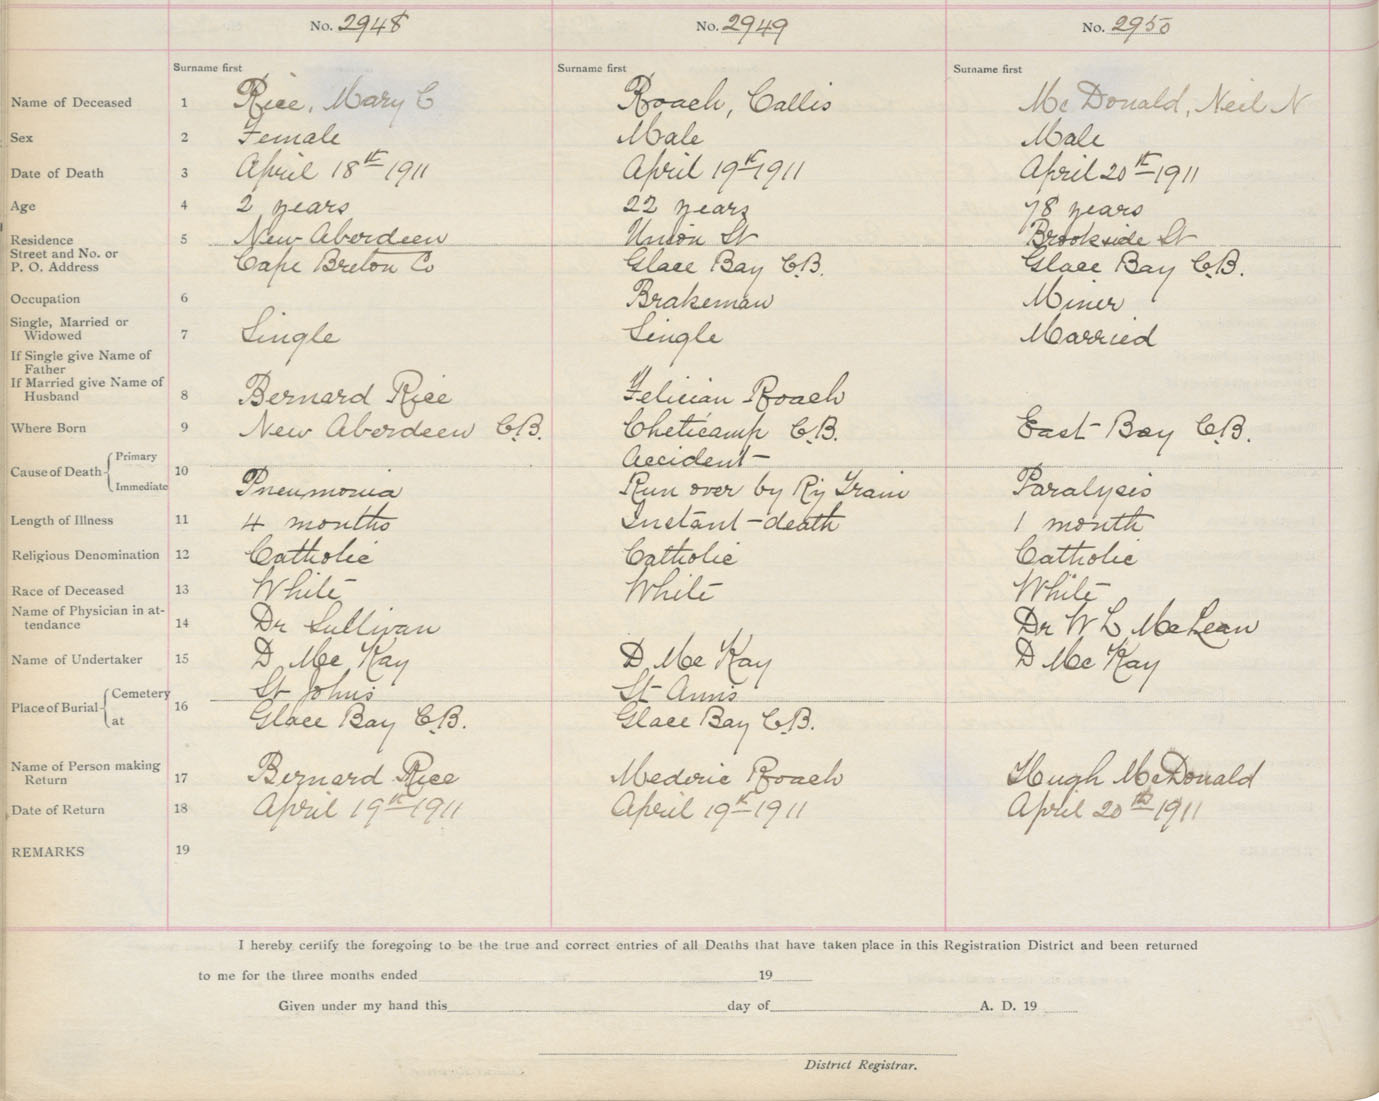 No. 2948 No. 2949 No. 2950
Surname first Surname first Surname first
Name of Deceased 1 Rice, Mary C Roach, Callis Mc Donald, Neil N
Sex 2 Female Male Male
Date of Death 3 April 18th 1911 April 19th 1911 April 20th 1911
Age 4 2 years 22 years 78 years
Residence 5 New Aberdeen Union St Brookside St
Street and No. or
P. O. Address Cape Breton Co Glace Bay C.B. Glace Bay C.B.
Occupation 6 Brakeman Miner
Single, Married or
Widowed 7 Single Single Married
If Single give Name of
Father
If Married give Name of
Husband 8 Bernard Rice Felician Roach
Where Born 9 New Aberdeen C.B. Cheticamp C.B. East Bay C.B.
Primary Accident
Cause of Death 10
Immediate Pneumonia Run over by Ry Train Paralysis
Length of Illness 11 4 months Instant death 1 month
Religious Denomination 12 Catholic Catholic Catholic
Race of Deceased 13 White White White
Name of Physician in at-
tendance 14 Dr Sullivan Dr W L McLean
Name of Undertaker 15 D Mc Kay D Mc Kay D Mc Kay
Cemetery St Johns St Anns
Place of Burial 16
at Glace Bay C.B. Glace Bay C.B.
Name of Person making
Return 17 Bernard Rice Mederic Roach Hugh McDonald
Date of Return 18 April 19th 1911 April 19th 1911 April 20th 1911
REMARKS 19
I hereby certify the foregoing to be the true and correct entries of all Deaths that have taken place in this Registration District and been returned
to me for the three months ended 19
Given under my hand this day of A. D. 19
District Registrar.